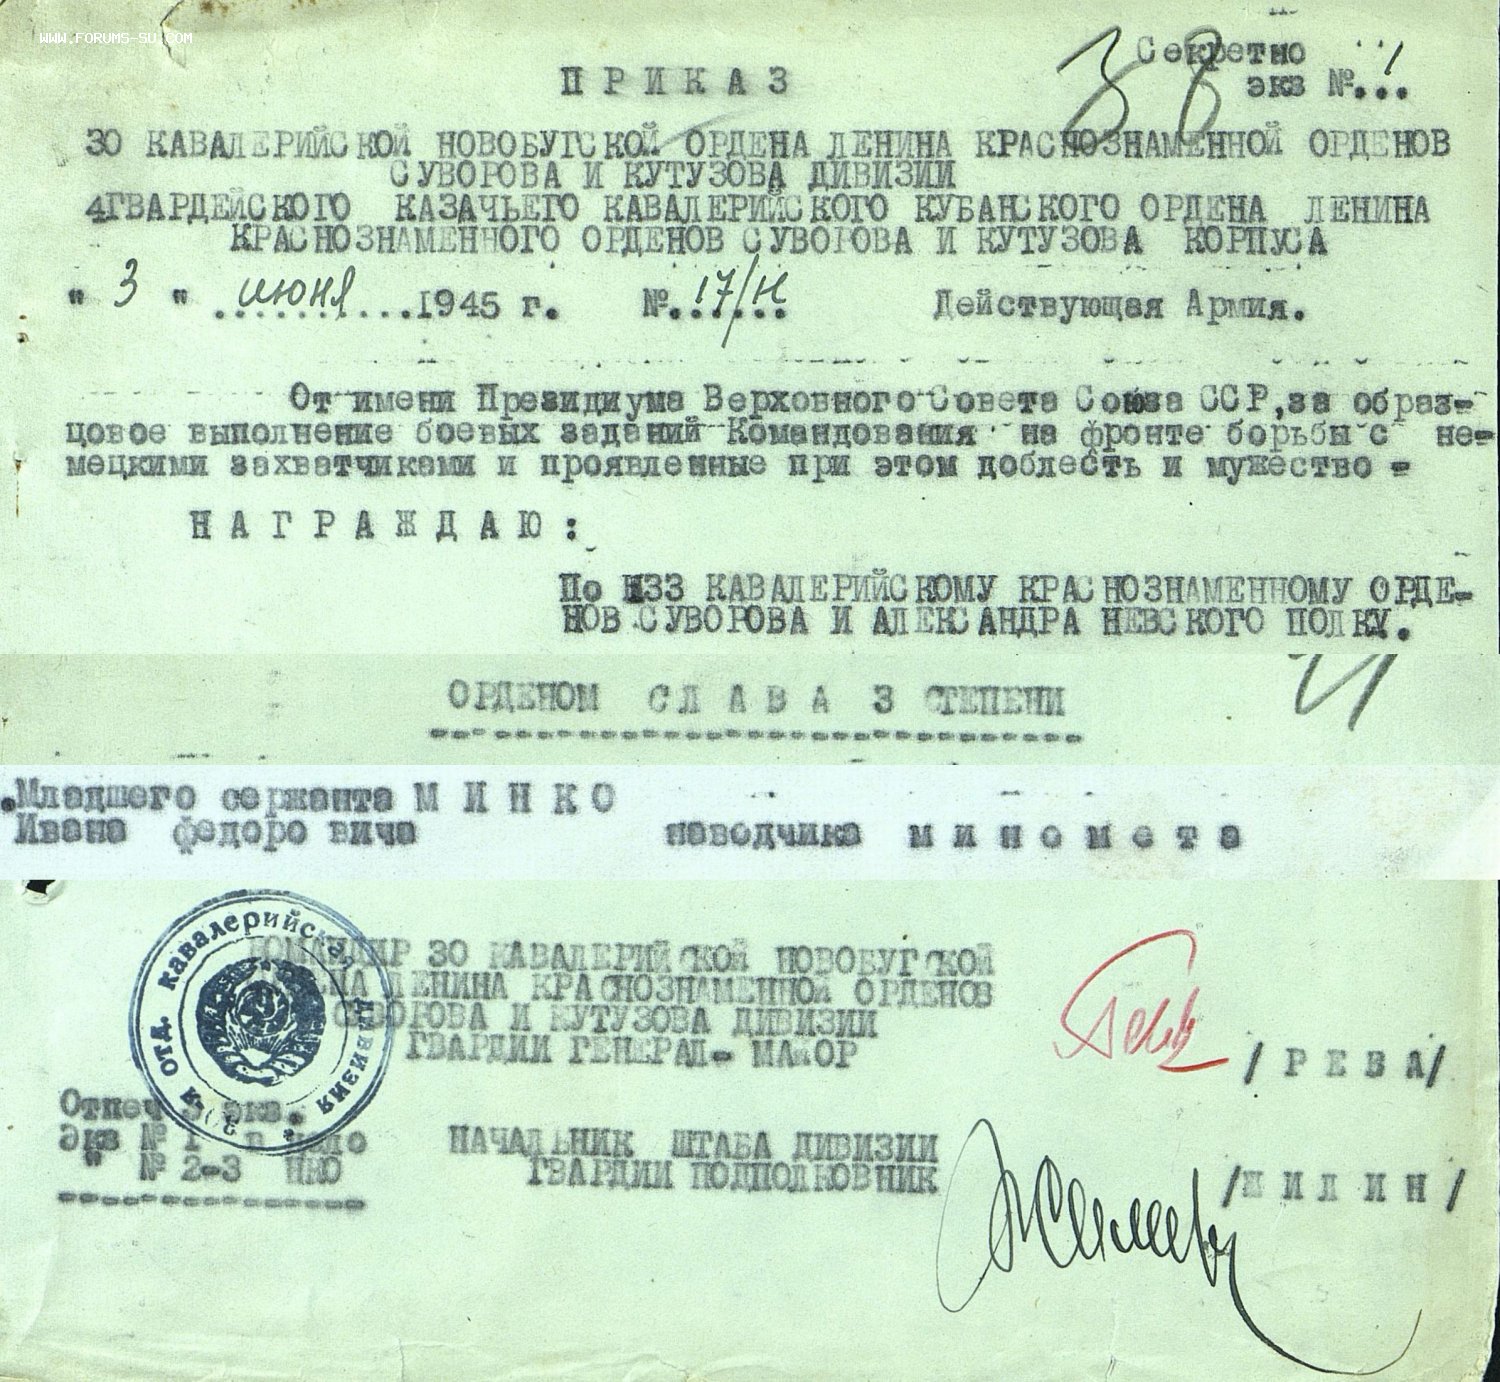 WWW.FORUMS-SU.COM
Секретно
экз №...1
38
П Р И К А З
30 КАВАЛЕРИЙСКОЙ НОВОБУГСКОЙ ОРДЕНА ЛЕНИНА КРАСНОЗНАМЕННОЙ ОРДЕНОВ
СУВОРОВА И КУТУЗОВА ДИВИЗИИ
4ГВАРДЕЙСКОГО КАЗАЧЬЕГО КАВАЛЕРИЙСКОГО КУБАНСКОГО ОРДЕНА ЛЕНИНА
КРАСНОЗНАМЕННОГО ОРДЕНОВ СУВОРОВА И КУТУЗОВА КОРПУСА
" 3 " июня 1945 г. №. 17/н Действующая Армия.
От имени Президиума Верховного Совета Союза ССР, за образ-
цовое выполнение боевых заданий Командования на фронте борьбы с не-
мецкими захватчиками и проявленные при этом доблесть и мужество -
Н А Г Р А Ж Д А Ю :
По 133 КАВАЛЕРИЙСКОМУ КРАСНОЗНАМЕННОМУ ОРДЕ-
НОВ СУВОРОВА И АЛЕКСАНДРА НЕВСКОГО ПОЛКУ.
ОРДЕНОМ С Л А В А 3 СТЕПЕНИ
.Младшего сержанта М И Н К О
Ивана федоровича наводчика м и н о м е т а
КОМАНДИР 30 КАВАЛЕРИЙСКОЙ НОВОБУГСКОЙ
ЛЕНИНА КРАСНОЗНАМЕННОЙ ОРДЕНОВ
СУВОРОВА И КУТУЗОВА ДИВИЗИИ
ГВАРДИИ ГЕНЕРАЛ- МАЙОР
/ Р Е В А/
кавалерийская дивизия
отд.
Отпеч 3 экз.
Экз № 1 в дело
" № 2-3 НКО
НАЧАЛЬНИК ШТАБА ДИВИЗИИ
ГВАРДИИ ПОДПОЛКОВНИК
/Ж И Л И Н/